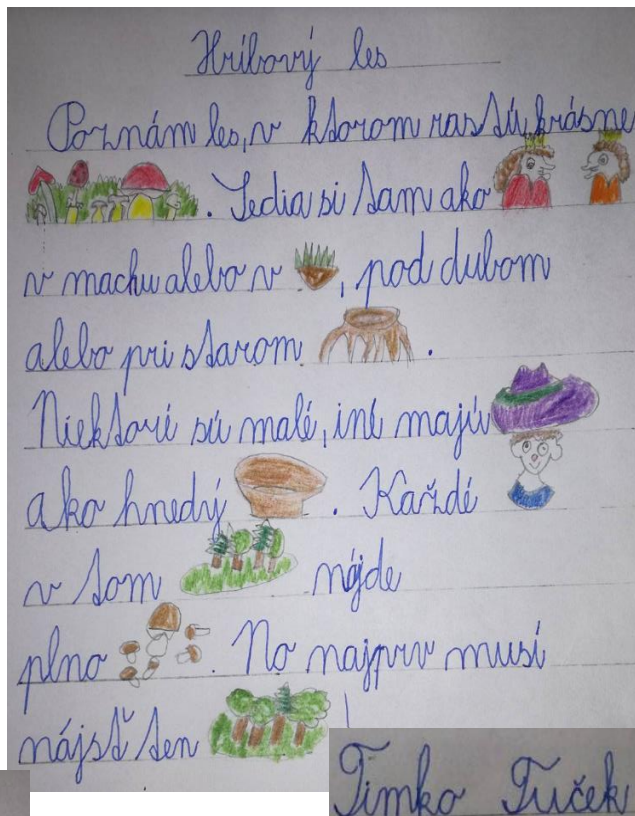 Hríbový les
Poznám les, v ktorom rastú krásne
. Sedia si tam ako
v machu alebo v , pod dubom
alebo pri starom .
Niektoré sú malé, iné majú
ako hnedý . Každé
v tom nájde
plno . No najprv musí
nájsť ten !
Timko Tuček